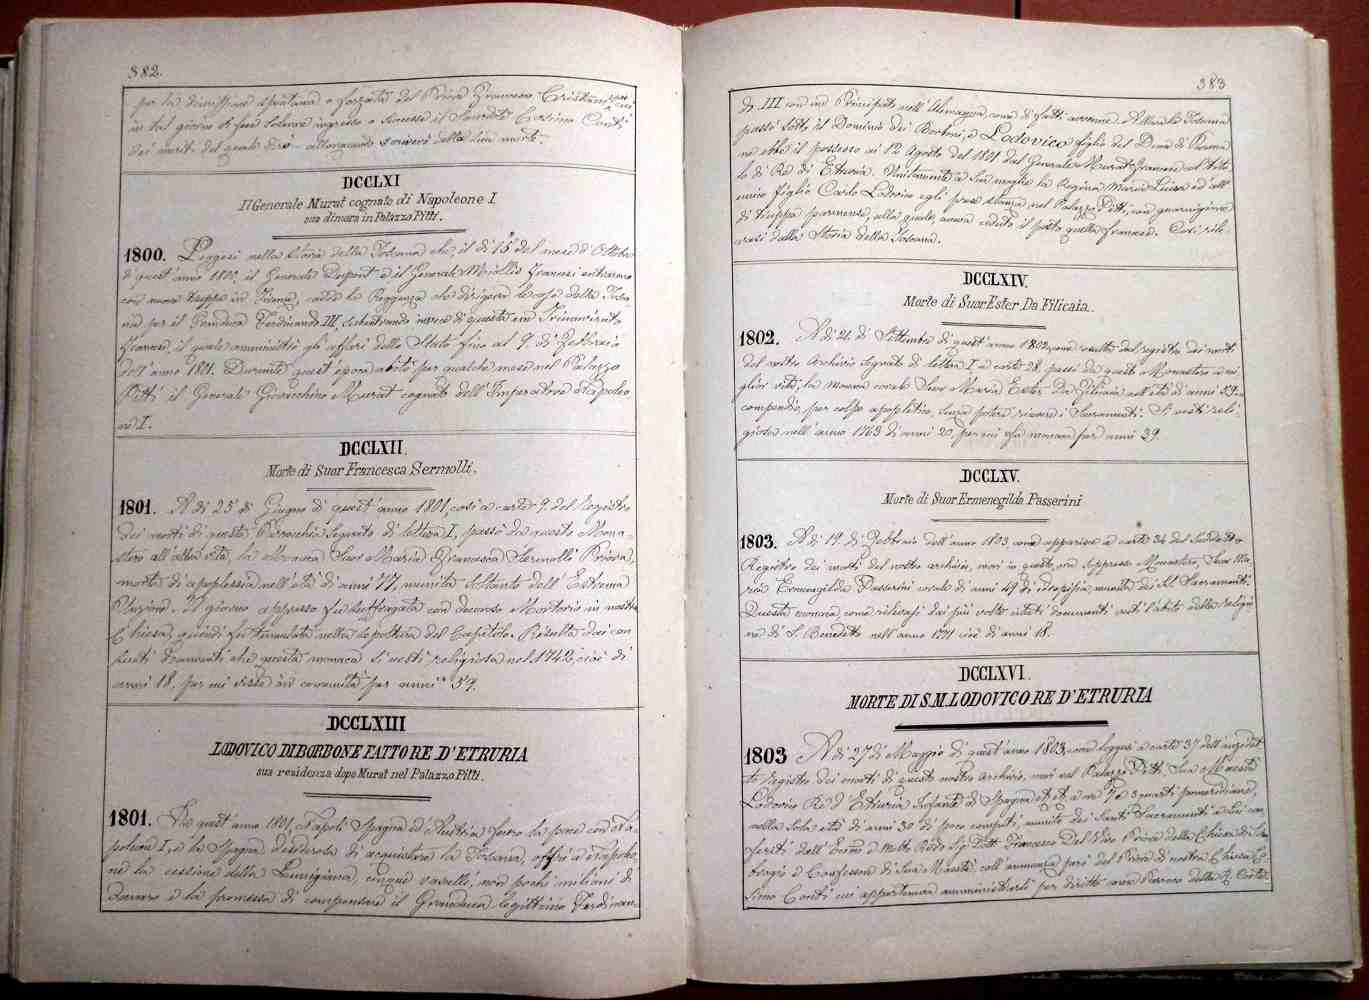 382.
per la dimissione spontanea o forzata del Priore Francesco Cristiani, cui
in tal giorno di fece solenne ingresso e successe il Sacerdote Cosimo Conti
dei meriti del quale dirò allorquando scriverò della sua morte.
DCCLXI
Il Generale Murat cognato di Napoleone I
sua dimora in Palazzo Pitti.
1800. Leggesi nella storia della Toscana che, il di 15 del mese d'Ottobre
di quest'anno 1800, il Generale Dupont e il Generale Miollis Francesi entrarono
con nuove truppe in Toscana, cadde la Reggenza che dirigeva le cose della Tosca
na per il Granduca Ferdinando III, subentrando invece di questa un Triumvirato
Francese, il quale amministrò gli affari dello Stato fino al 9. di Febbraio
dell'anno 1801. Durante quest'epoca abitò per qualche mese nel Palazzo
Pitti il Generale Giovacchino Murat cognato dell'Imperatore Napoleo
ne I.
DCCLXII.
Morte di Suor Francesca Sermolli.
1801. A di 25 di Giugno di quest'anno 1801, così a carte 9. del Registro
dei morti di questa Parrocchia segnato di lettera I, passò da questo Mona-
stero all'altra vita, la Monaca Suor Maria Francesca Sermolli Priora,
morta di apoplessia nell'età di anni 77, munita soltanto dell'Estrema
Unzione. Il giorno appresso fu suffragata con decoroso Mortorio in nostra
Chiesa, quindi fu tumulata nella sepoltura del Capitolo. Risulta dai con
sueti documenti che questa monaca si vestì religiosa nel 1742, cioè di
anni 18. per cui visse in comunità per anni 59.
DCCLXIII
LODOVICO DI BORBONE FATTO RE D'ETRURIA
sua residenza dopo Murat nel Palazzo Pitti.
1801. In quest'anno 1801, Napoli Spagna ed Austria fecero la pace con Na
poleone I, e la Spagna desiderosa di acquistare la Toscana, offrì a Napoleo
ne la cessione della Luisigiana, cinque vascelli, non pochi milioni di
danaro e la promessa di compensare il Granduca legittimo Ferdinan-
383
do III con un Principato nell'Alemagna come di fatti avvenne. Allorché la Toscana
passò sotto il Dominio dei Borboni, e Lodovico figlio del Duca di Parma
ne ebbe il possesso ai 12 Agosto del 1801 dal Generale Murat Francese col tito
lo di Re di Etruria. Unitamente a sua moglie la Regina Maria Luisa ed all'
unico figlio Carlo Lodovico egli prese stanza nel Palazzo Pitti, con guarnigione
di truppa parmense, alla quale, aveva ceduto il posto quella francese. Così rile-
vasi dalla Storia della Toscana.
DCCLXIV.
Morte di Suor Ester Da Filicaia.
1802. A di 24 di Settembre di quest'anno 1802, come risulta dal registro dei morti
del nostro Archivio segnato di lettera I a carte 28 passò da questo Monastero a mi
glior vita, la monaca corale Suor Maria Ester Da Filicaia nell'età di anni 59
compendio, per colpo apopletico, senza potere ricevere i Sacramenti. Si vestì reli-
giosa nell'anno 1763 di anni 20, per cui fu monaca per anni 39.
DCCLXV.
Morte di Suor Ermenegilda Passerini
1803. A di 19 di Febbraio dell'anno 1803, come apparisce a carte 34 del suddetto
Registro dei morti del nostro archivio, morì in questo, ora soppresso Monastero, Suor Ma
ria Ermenegilda Passerini corale di anni 49 di idropisia, munita dei SS. Sacramenti.
Questa monaca, come rilevasi dai più volte citati documenti vestì l'abito della religio
ne di S. Benedetto nell'anno 1771 cioè di anni 18.
DCCLXVI.
MORTE DI S.M. LODOVICO RE D'ETRURIA
1803 A di 27 di Maggio di quest'anno 1803, come leggesi a carte 37 dell'anzidet
to registro dei morti di questo nostro archivio, morì nel Palazzo Pitti, Sua Maestà
Lodovico Re d'Etruria Infante di Spagna et. et. a ore 7 e 3 quarti pomeridiane,
nella sola età di anni 30 di poco compiti, munito dei Santi Sacramenti a Lui con
feriti dall'Ecc.mo e Molto Rev.do Sig. Dott. Francesco Del Vivo Priore della Chiesa di
e Confessore di Sua Maestà, coll'annuenza però del Priore di nostra Chiesa Co
simo Conti cui apparteneva amministrarli per diritto come Parroco della R. Corte.